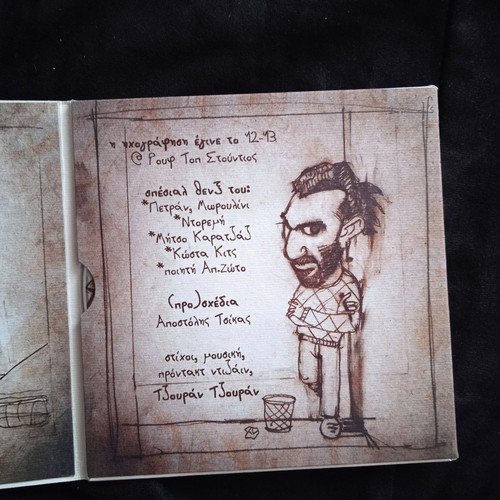 η ηχογράφηση έγινε το '12-'13
@ Ρουφ Τοπ Στούντιος
σπέσιαλ θενξ του:
*Πετράν, Μωρουλίνι
*Ντορεμή
*Μήτσο Καρατζάζ
*Κώστα Κιτς
*ποιητή Απ.Ζώτο
(προ)σχέδια
Αποστόλης Τσίκας
στίχοι, μουσική,
πρόντακτ ντιζάιν,
Τζουράν Τζουράν